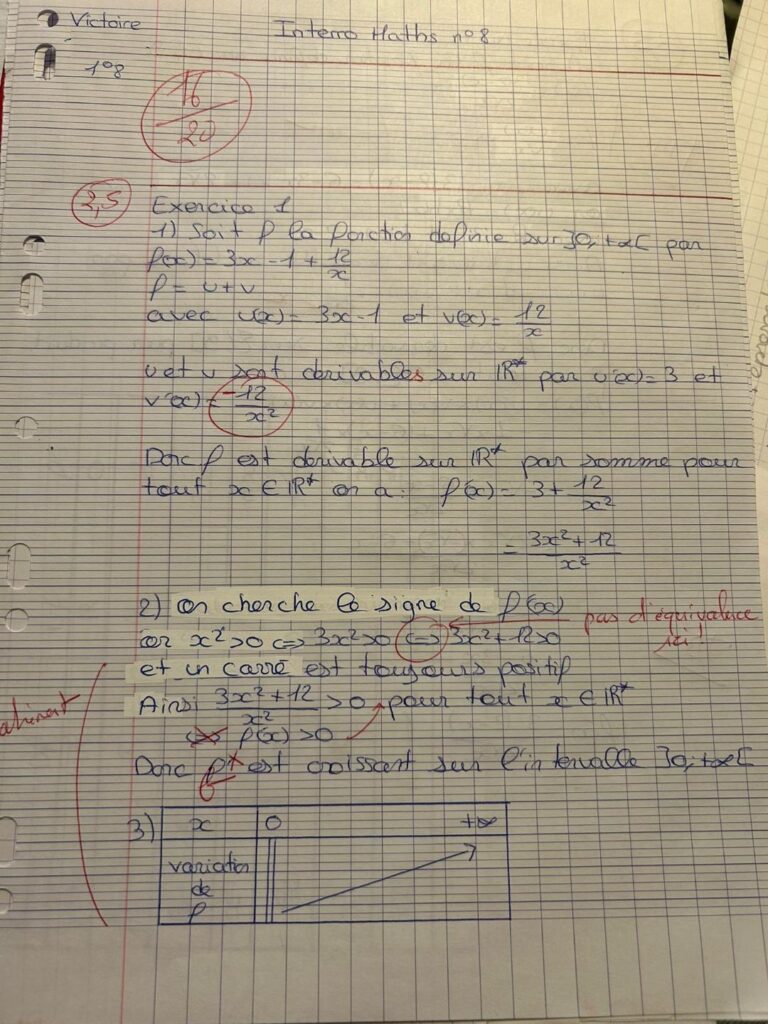 Victoire
Interro Maths n°8
1°8
16
20
2,5
Exercice 1
1) Soit f la fonction definie sur ]0;+∞[ par
f(x) = 3x - 1 + 12/x
f = u + v
avec u(x) = 3x-1 et v(x) = 12/x
u et v sont derivables sur ℝ* par u'(x) = 3 et
v'(x) = -12/x²
Donc f est derivable sur ℝ* par somme pour
tout x ∈ ℝ* on a: f'(x) = 3 + 12/x²
= 3x²+12/x²
2) on cherche le signe de f'(x)
or x²>0 ⇔ 3x²>0 ⇔ 3x²+12>0
pas d'équivalence
ici!
et un carré est toujours positif
Ainsi 3x²+12/x² >0 pour tout x ∈ ℝ*
f'(x) >0
Donc f est croissant sur l'intervalle ]0;+∞[
f
3)
x 0 +∞
variation
de
f